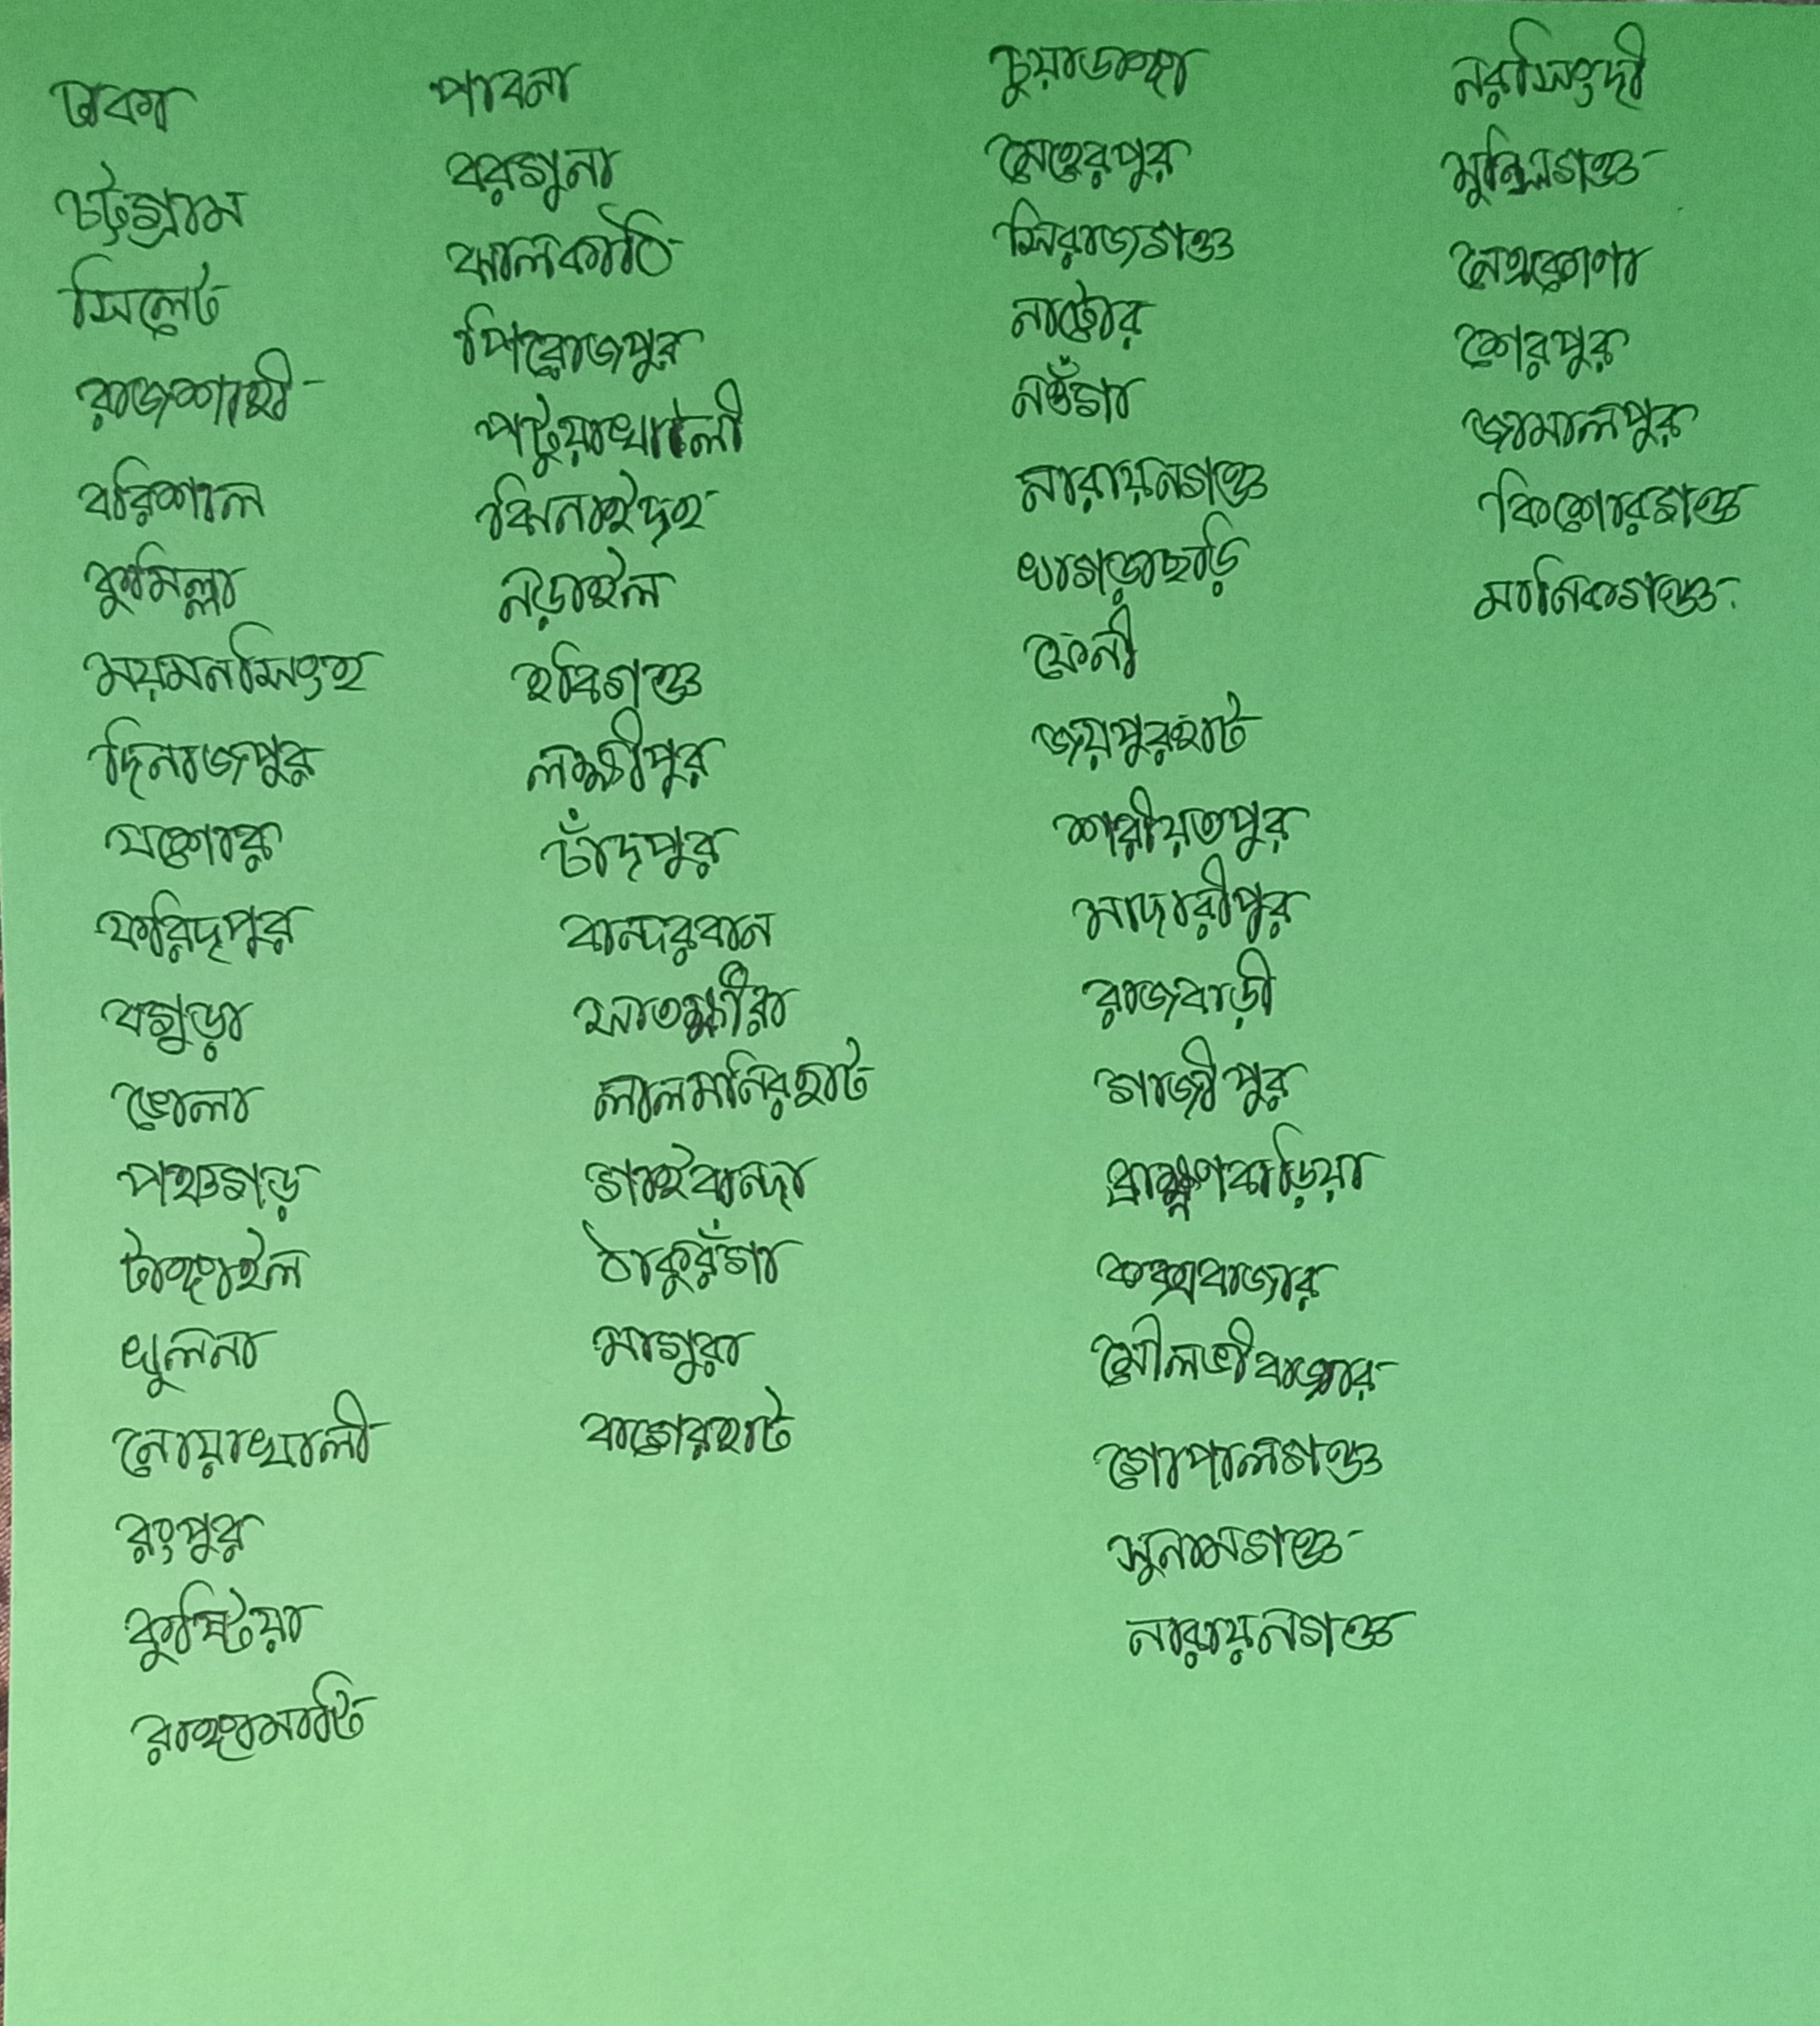 ঢাকা
চট্টগ্রাম
সিলেট
রাজশাহী
বরিশাল
কুমিল্লা
ময়মনসিংহ
দিনাজপুর
যশোর
ফরিদপুর
বগুড়া
ভোলা
পঞ্চগড়
টাঙ্গাইল
খুলনা
নোয়াখালী
রংপুর
কুষ্টিয়া
রাঙ্গামাটি
পাবনা
বরগুনা
ঝালকাঠি
পিরোজপুর
পটুয়াখালী
ঝিনাইদহ
নড়াইল
হবিগঞ্জ
লক্ষ্মীপুর
চাঁদপুর
বান্দরবান
সাতক্ষীরা
লালমনিরহাট
গাইবান্দা
ঠাকুরঁগা
মাগুরা
বাগেরহাট
চুয়াডাঙ্গা
মেহেরপুর
সিরাজগঞ্জ
নাটোর
নওঁগা
নারায়নগঞ্জ
খাগড়াছড়ি
ফেনী
জয়পুরহাট
শরীয়তপুর
মাদারীপুর
রাজবাড়ী
গাজীপুর
ব্রাক্ষ্মণবাড়িয়া
কক্সবাজার
মৌলভীবাজার
গোপালগঞ্জ
সুনামগঞ্জ
নারায়নগঞ্জ
নরসিংদী
মুন্সিগঞ্জ
নেত্রকোণা
শেরপুর
জামালপুর
কিশোরগঞ্জ
মানিকগঞ্জ.